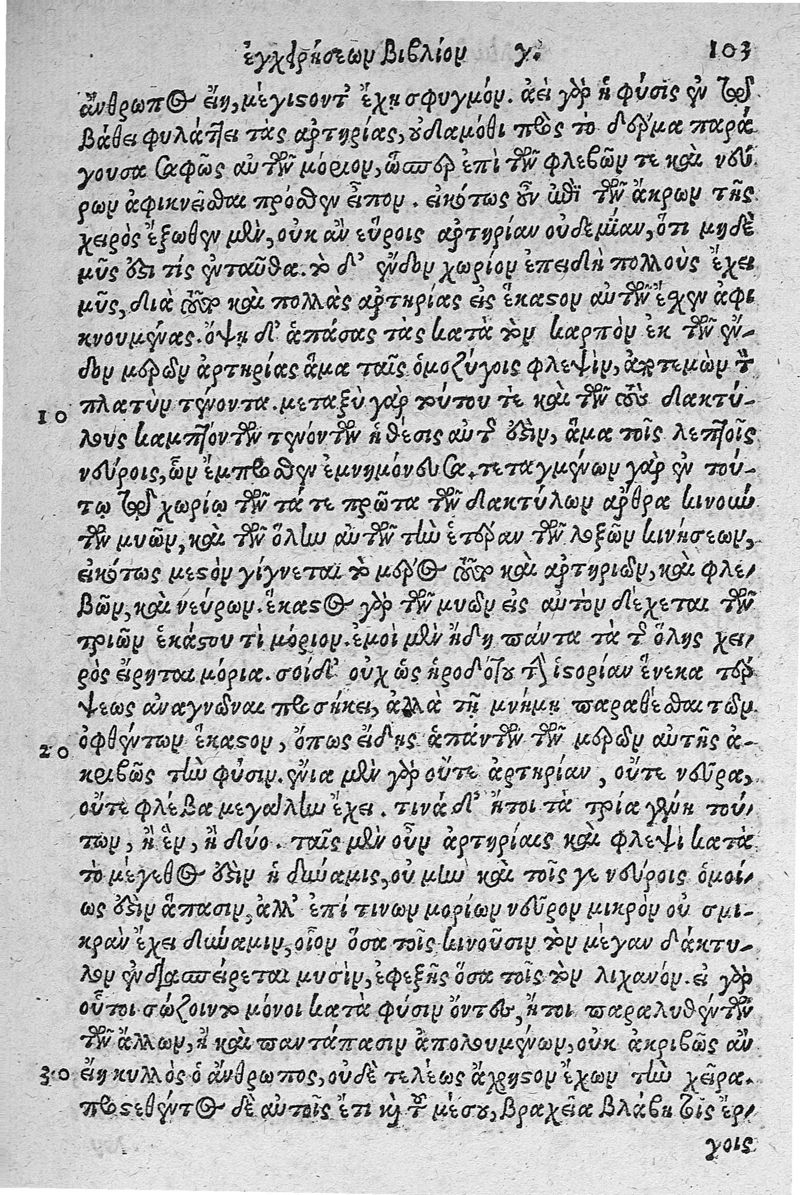 ἐγχειρήσεων Βιβλίον γ. 103
ἄνθρωπος εἴη, μέγιστόντ' ἔχῃ σφυγμόν. ἀεὶ γὰρ ἡ φύσις ἐν τῷ
βάθει φυλάττει τὰς ἀρτηρίας, οὐδαμόθι πρὸς τὸ δέρμα παρά
γουσα σαφῶς αὐτῶν μόριον, ὥσπερ ἐπὶ τῶν φλεβῶν τε καὶ νεύ
ρων ἀφικνεῖσθαι πρόσθεν εἶπον. εἰκότως οὖν ἐπὶ τῶν ἄκρων τῆς
χειρὸς ἔξωθεν μὲν, οὐκ ἂν εὕροις ἀρτηρίαν οὐδεμίαν, ὅτι μηδὲ
μῦς ἐστί τίς ἐνταῦθα. τὸ δ' ἔνδον χωρίον ἐπειδὴ πολλοὺς ἔχει
μῦς, διὰ τοῦτο καὶ πολλὰς ἀρτηρίας εἰς ἕκαστον αὐτῶν ἔχεν ἀφι
κνουμένας. ὄψῃ δ' ἁπάσας τὰς κατὰ τὸν καρπὸν ἐκ τῶν ἔν-
δον μερῶν ἀρτηρίας ἅμα ταῖς ὁμοζύγοις φλεψὶν, ἐκτεμὼν τὸν
10 πλατὺν τένοντα. μεταξὺ γὰρ τούτου τὲ καὶ τῶν τοὺς δακτύ-
λους καμπτόντων τενόντων ἡ θέσις αὐτῶν ἐστὶν, ἅμα τοῖς λεπτοῖς
νεύροις, ὧν ἔμπροσθεν ἐμνημόνευσα. τεταγμένων γὰρ ἐν τού-
τῳ τῷ χωρίῳ τῶν τά τε πρῶτα τῶν δακτύλων ἄρθρα κινούν
των μυῶν, καὶ τῶν ὅλην αὐτῶν τὴν ἑτέραν τῶν λοξῶν κινήσεων,
εἰκότως μεστὸν γίγνεται τὸ μέρος τοῦτο καὶ ἀρτηριῶν, καὶ φλε-
βῶν, καὶ νεύρων. ἕκαστος γὰρ τῶν μυῶν εἰς αὐτὸν δέχεται τῶν
τριῶν ἑκάστου τὶ μόριον. ἐμοὶ μὲν ἤδη πάντα τὰ τῆς ὅλης χει-
ρὸς εἴρηται μόρια. σοὶ δ' οὐχ ὡς ἡροδότου τὴν ἱστορίαν ἕνεκα τέρ
ψεως ἀναγνῶναι προσήκει, ἀλλὰ τῇ μνήμῃ παραθέσθαι τῶν
20 ὀφθέντων ἕκαστον, ὅπως εἰδῇς ἁπάντων τῶν μερῶν αὐτῆς ἀ-
κριβῶς τὴν φύσιν. ἔνια μὲν γὰρ οὔτε ἀρτηρίαν, οὔτε νεῦρα,
οὔτε φλέβα μεγάλην ἔχει. τινὰ δ' ἤτοι τὰ τρία γένη τού-
των, ἢ ἓν, ἢ δύο. ταῖς μὲν οὖν ἀρτηρίαις καὶ φλεψὶ κατὰ
τὸ μέγεθος ἐστὶν ἡ δύναμις, οὐ μὴν καὶ τοῖς γε νεύροις ὁμοί-
ως ἐστὶν ἅπασιν, ἀλλ' ἐπί τινων μορίων νεῦρον μικρὸν οὐ σμι-
κρὰν ἔχει δύναμιν, οἷον ὅσα τοῖς κινοῦσιν τὸν μέγαν δάκτυ-
λον ἐνδιασπείρεται μυσὶν, ἐφεξῆς ὅσα τοῖς τὸν λιχανόν. εἰ γὰρ
οὗτοι σώζοιντο μόνοι κατὰ φύσιν ὄντες, ἤτοι παραλυθέντων
τῶν ἄλλων, ἢ καὶ παντάπασιν ἀπολουμένων, οὐκ ἀκριβῶς ἂν
30 εἴη κυλλὸς ὁ ἄνθρωπος, οὐδὲ τελέως ἄχρηστον ἔχων τὴν χεῖρα.
προστεθέντος δὲ αὐτοῖς ἔτι καὶ τοῦ μέσου, βραχεῖα βλάβη τοῖς ἔρ-
γοις